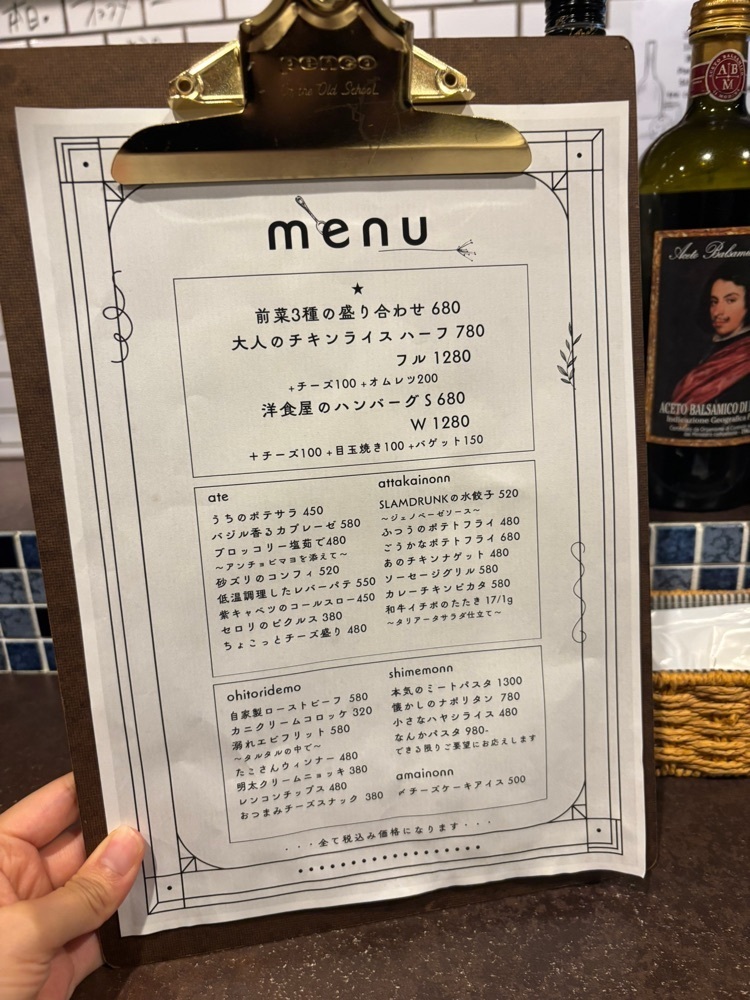 本日.
PENCO
In the Old School
menu
★
前菜3種の盛り合わせ 680
大人のチキンライス ハーフ 780
フル 1280
+チーズ100 +オムレツ200
洋食屋のハンバーグ S 680
W 1280
+チーズ100 +目玉焼き100 +バゲット150
ate
うちのポテサラ 450
バジル香るカプレーゼ 580
ブロッコリー塩茹で480
~アンチョビマヨを添えて~
砂ズリのコンフィ 520
低温調理したレバーパテ 550
紫キャベツのコールスロー450
セロリのピクルス 380
ちょこっとチーズ盛り 480
attakainonn
SLAMDRUNKの水餃子 520
~ジェノベーゼソース~
ふつうのポテトフライ 480
ごうかなポテトフライ 680
あのチキンナゲット 480
ソーセージグリル 580
カレーチキンピカタ 580
和牛イチボのたたき 17/1g
~タリアータサラダ仕立て~
ohitoridemo
自家製ローストビーフ 580
カニクリームコロッケ 320
溺れエビフリット 580
~タルタルの中で~
たこさんウィンナー 480
明太クリームニョッキ 380
レンコンチップス 480
おつまみチーズスナック 380
shimemonn
本気のミートパスタ 1300
懐かしのナポリタン 780
小さなハヤシライス 480
なんかパスタ 980-
できる限りご要望にお応えします
amainonn
〆チーズケーキアイス 500
・・・全て税込み価格になります・・・
ABM
Aceto Balsami
ACETO BALSAMICO DI
Indicazione Geografica